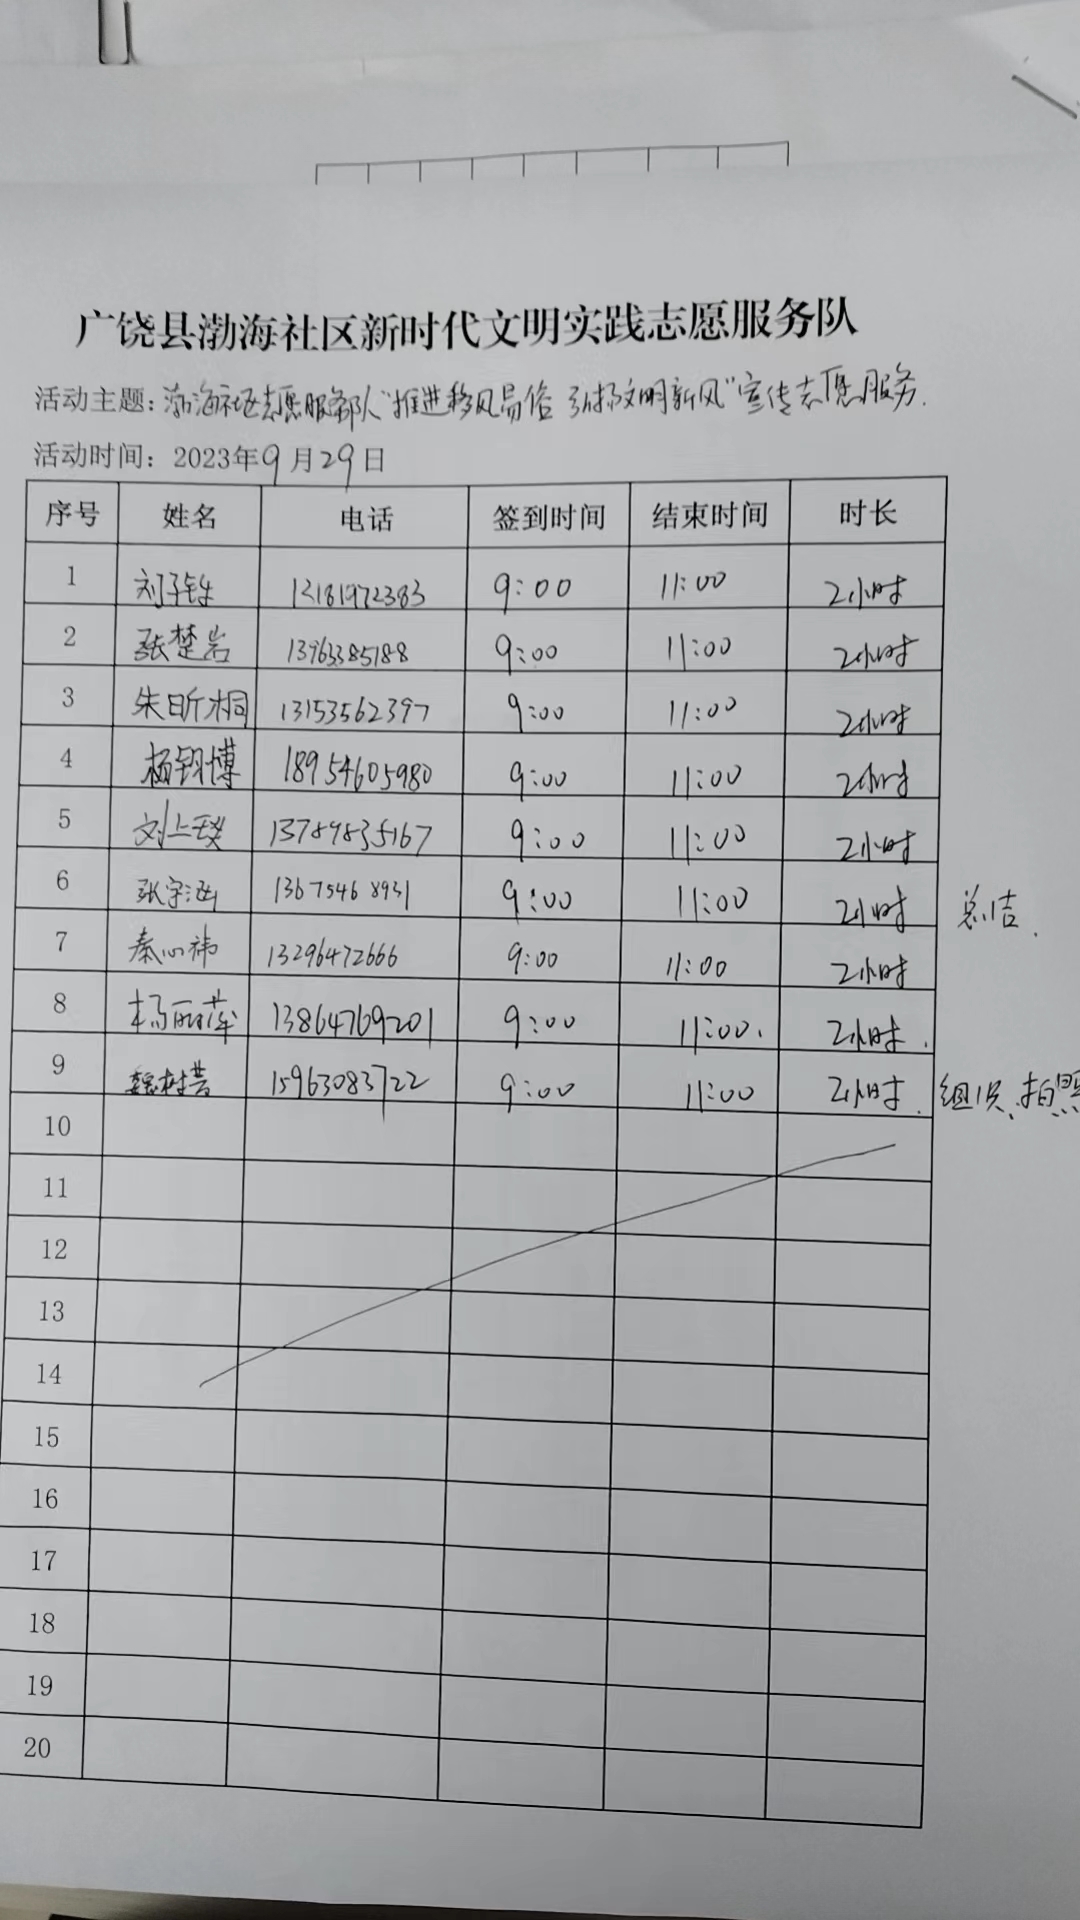 广饶县渤海社区新时代文明实践志愿服务队
活动主题：渤海社区志愿服务队“推进移风易俗 弘扬文明新风”宣传志愿服务.
活动时间：2023年9月29日
序号 姓名 电话 签到时间 结束时间 时长
1 刘子钰 12181972383 9:00 11:00 2小时
2 张楚岩 13963385188 9:00 11:00 2小时
3 朱昕桐 13153562397 9:00 11:00 2小时
4 杨翔博 18954605980 9:00 11:00 2小时
5 刘上 13789835167 9:00 11:00 2小时
6 张宇涵 13675468931 9:00 11:00 2小时 总结.
7 秦心祎 13296472666 9:00 11:00 2小时
8 杨丽萍 13864769201 9:00 11:00. 2小时.
9 魏树芸 15963083722 9:00 11:00 2小时. 组织、拍照
10
11
12
13
14
15
16
17
18
19
20